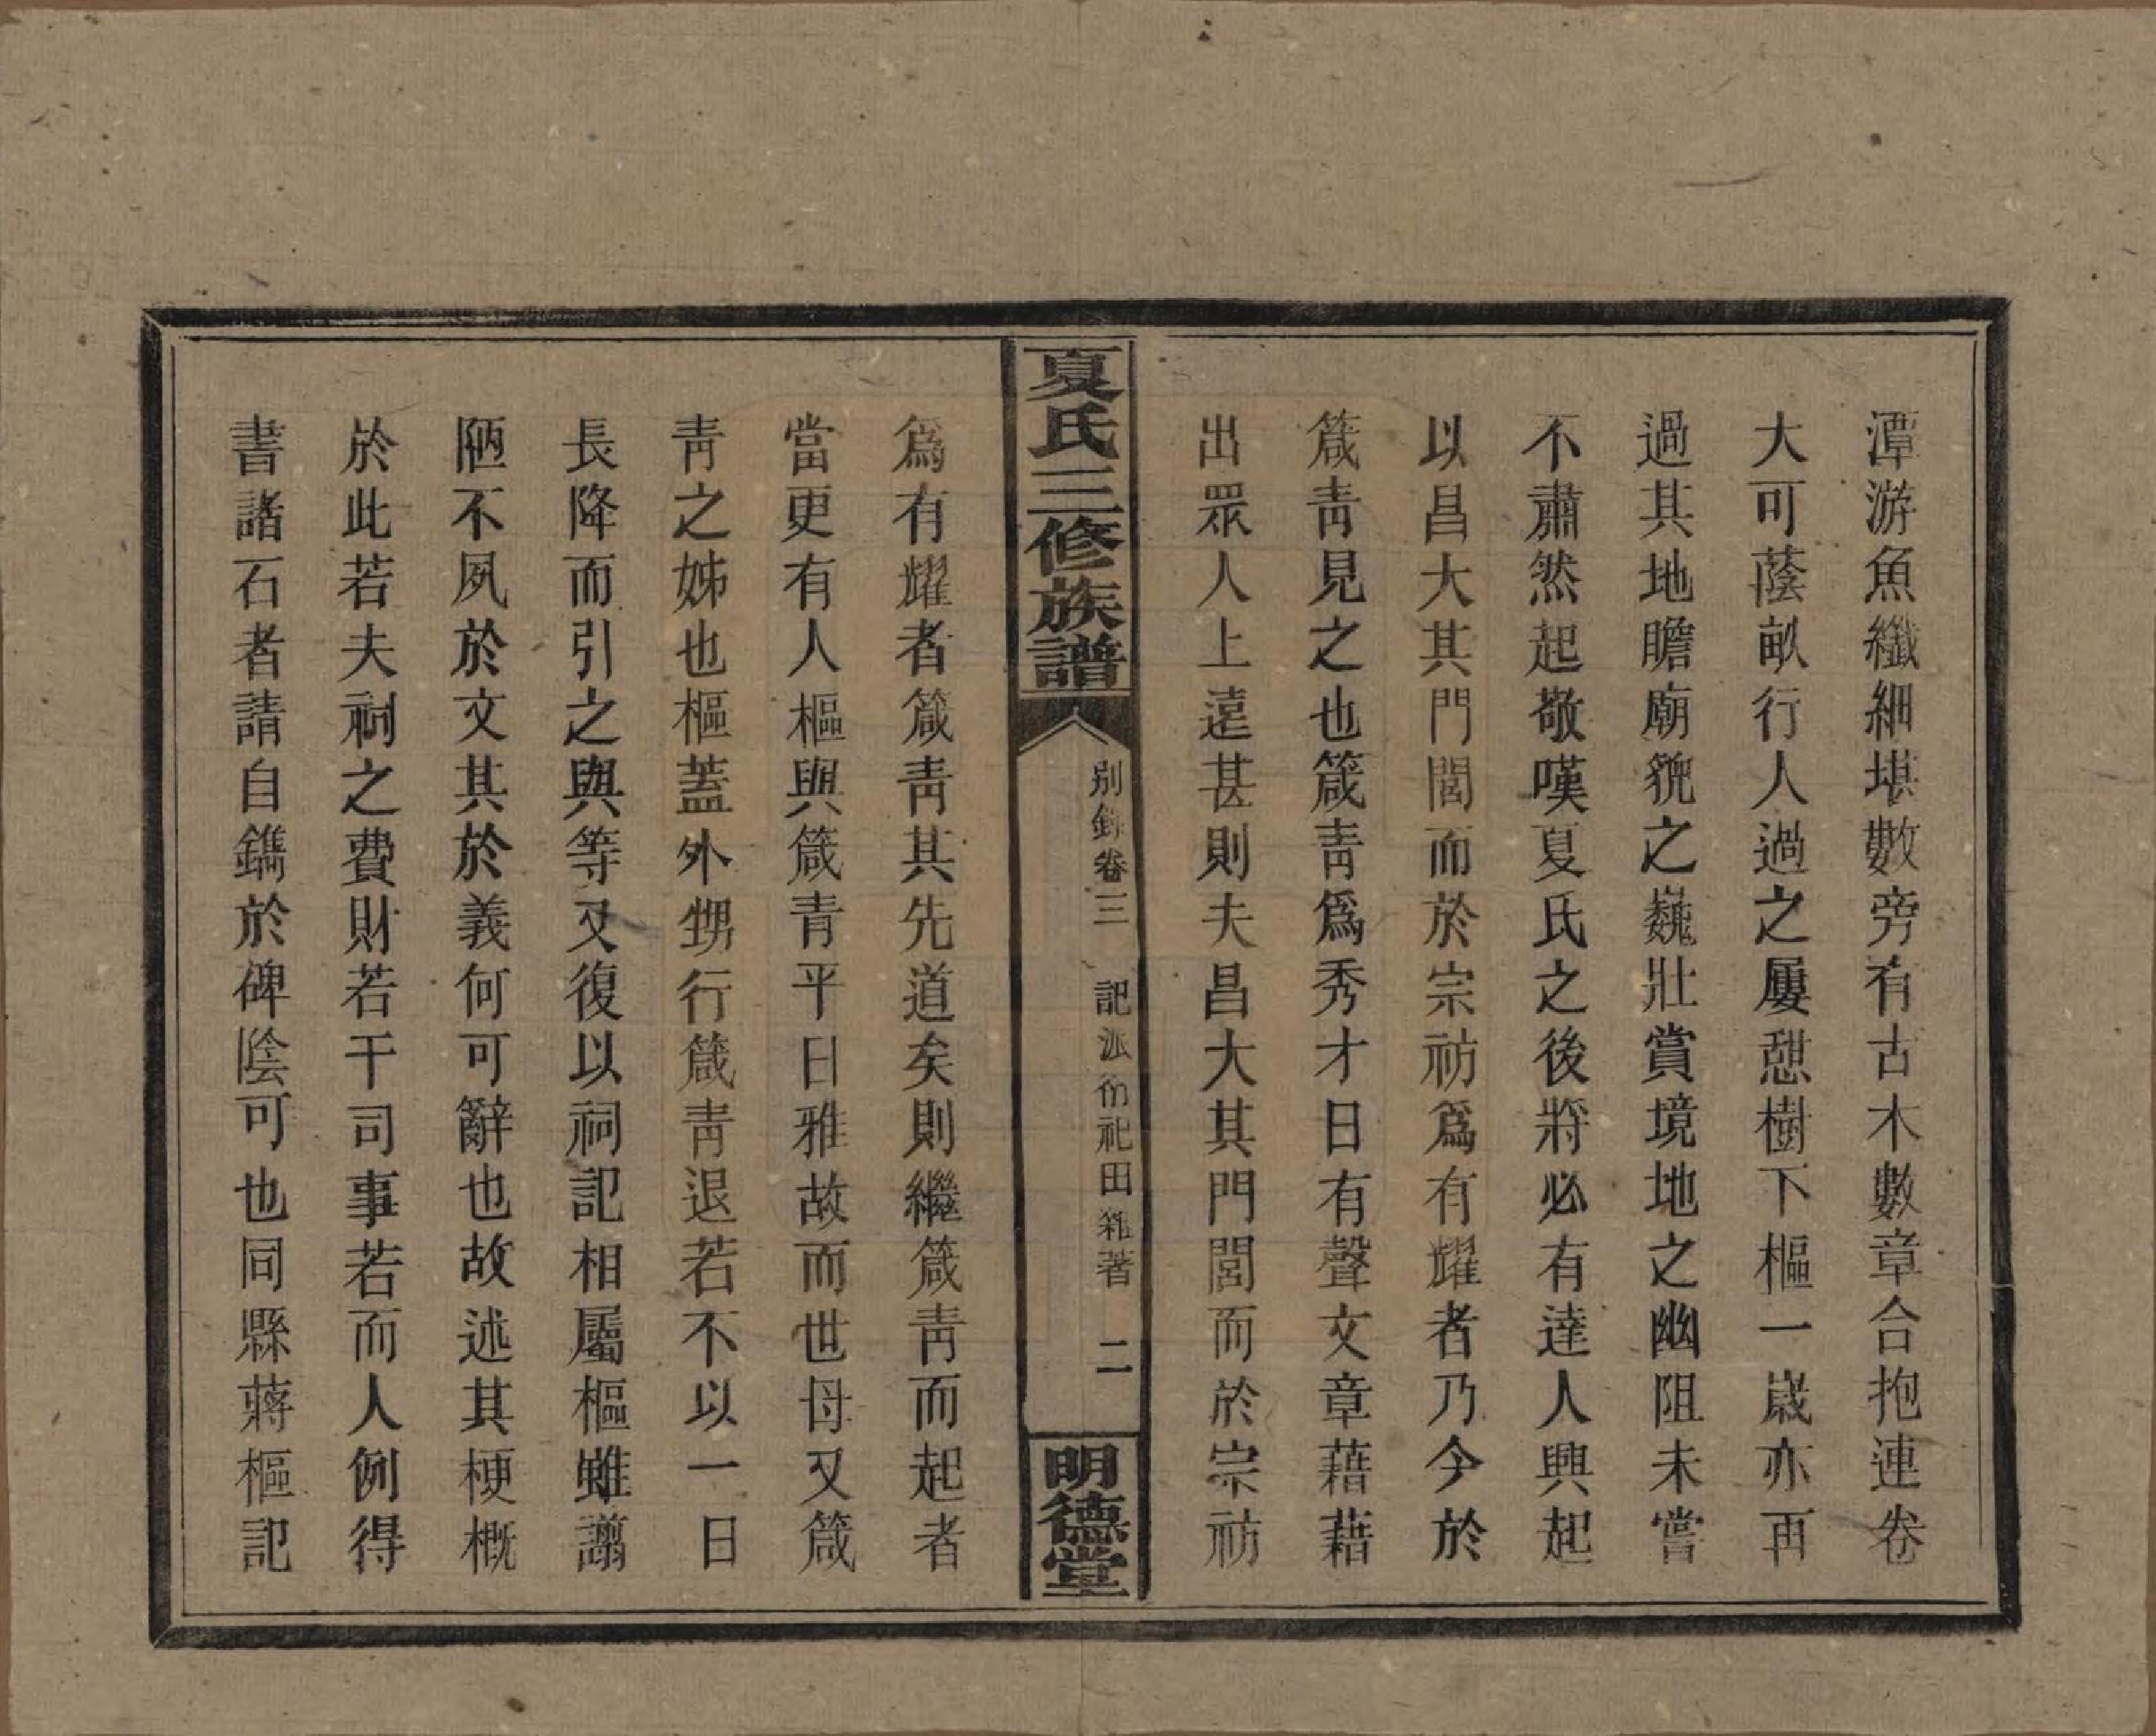 潭游魚纖細堪數旁有古木數章合抱連卷
大可蔭畝行人過之屢憩樹下樞一歲亦再
過其地瞻廟貌之巍壯賞境地之幽阻未嘗
不肅然起敬嘆夏氏之後將必有達人興起
以昌大其門閭而於宗祊爲有耀者乃今於
箴靑見之也箴靑爲秀才日有聲文章藉藉
出眾人上遠甚則夫昌大其門閭而於宗祊
夏氏三修族譜
別錄卷三 記派衕祀田雜著 二
明德堂
爲有耀者箴靑其先道矣則繼箴靑而起者
當更有人樞與箴青平日雅故而世母又箴
靑之姊也樞蓋外甥行箴靑退若不以一日
長降而引之與等又復以祠記相屬樞雖謭
陋不夙於文其於義何可辭也故述其梗概
於此若夫祠之費財若干司事若而人例得
書諸石者請自鐫於碑陰可也同縣蔣樞記